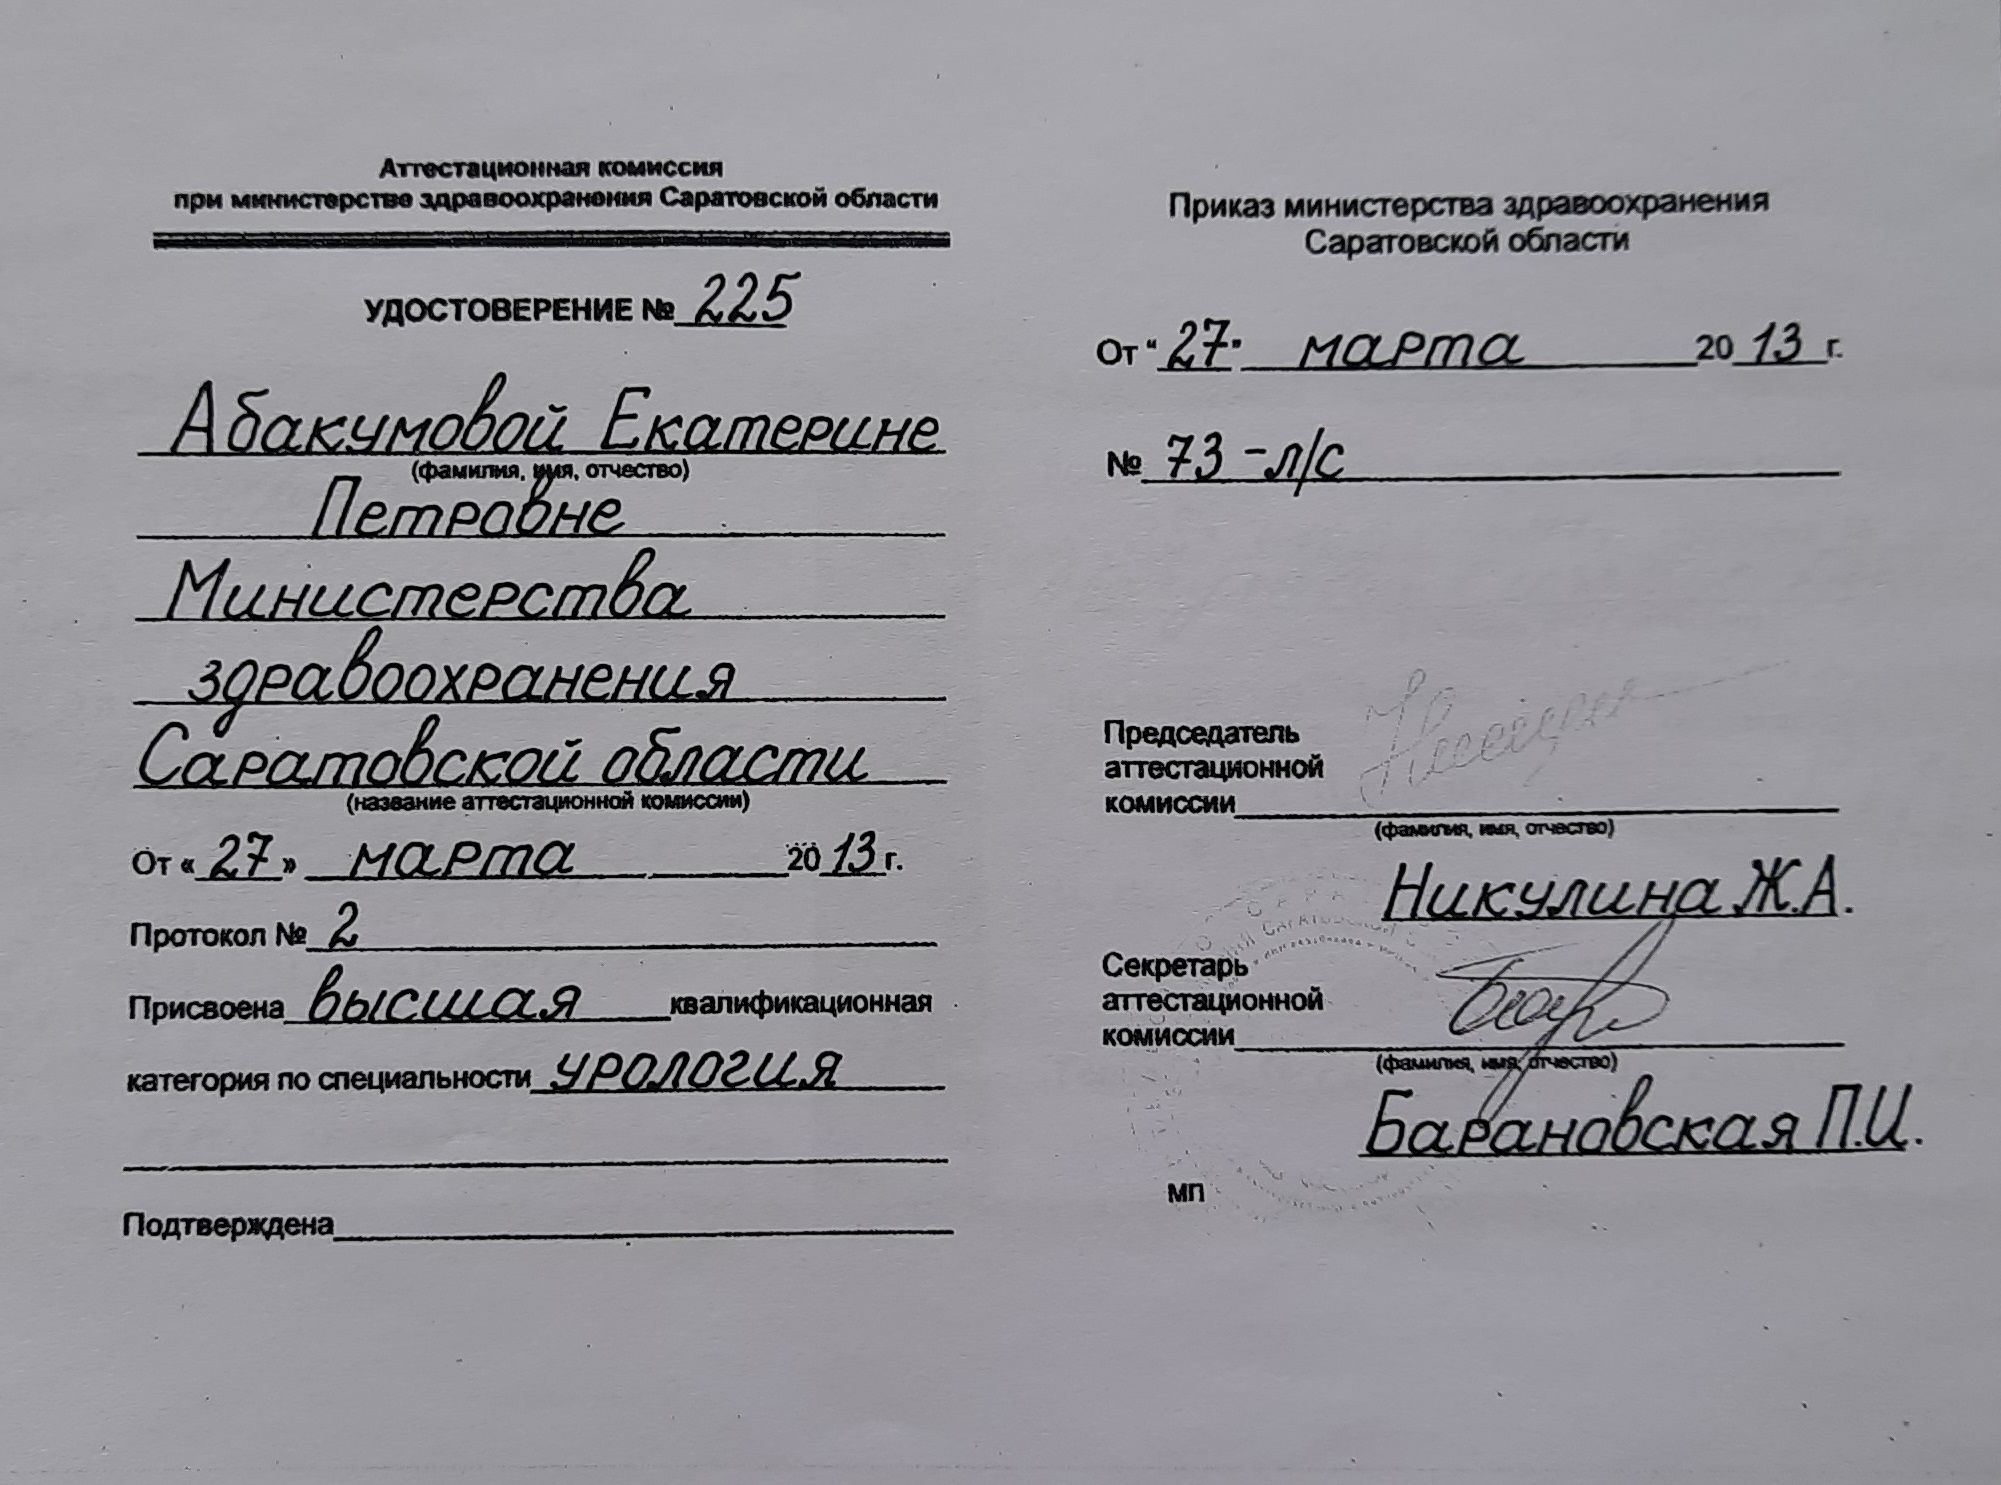 Аттестационная комиссия
при министерстве здравоохранения Саратовской области
УДОСТОВЕРЕНИЕ № 225
Абакумовой Екатерине
(фамилия, имя, отчество)
Петровне
Министерства
здравоохранения
Саратовской области
(название аттестационной комиссии)
От « 27 » марта 2013 г.
Протокол № 2
Присвоена высшая квалификационная
категория по специальности урология
Подтверждена
Приказ министерства здравоохранения
Саратовской области
От "27" марта 20 13 г.
№ 73 -л/с
Председатель
аттестационной
комиссии
(фамилия, имя, отчество)
Никулина Ж.А.
Секретарь
аттестационной
комиссии
(фамилия, имя, отчество)
Барановская П.И.
МП